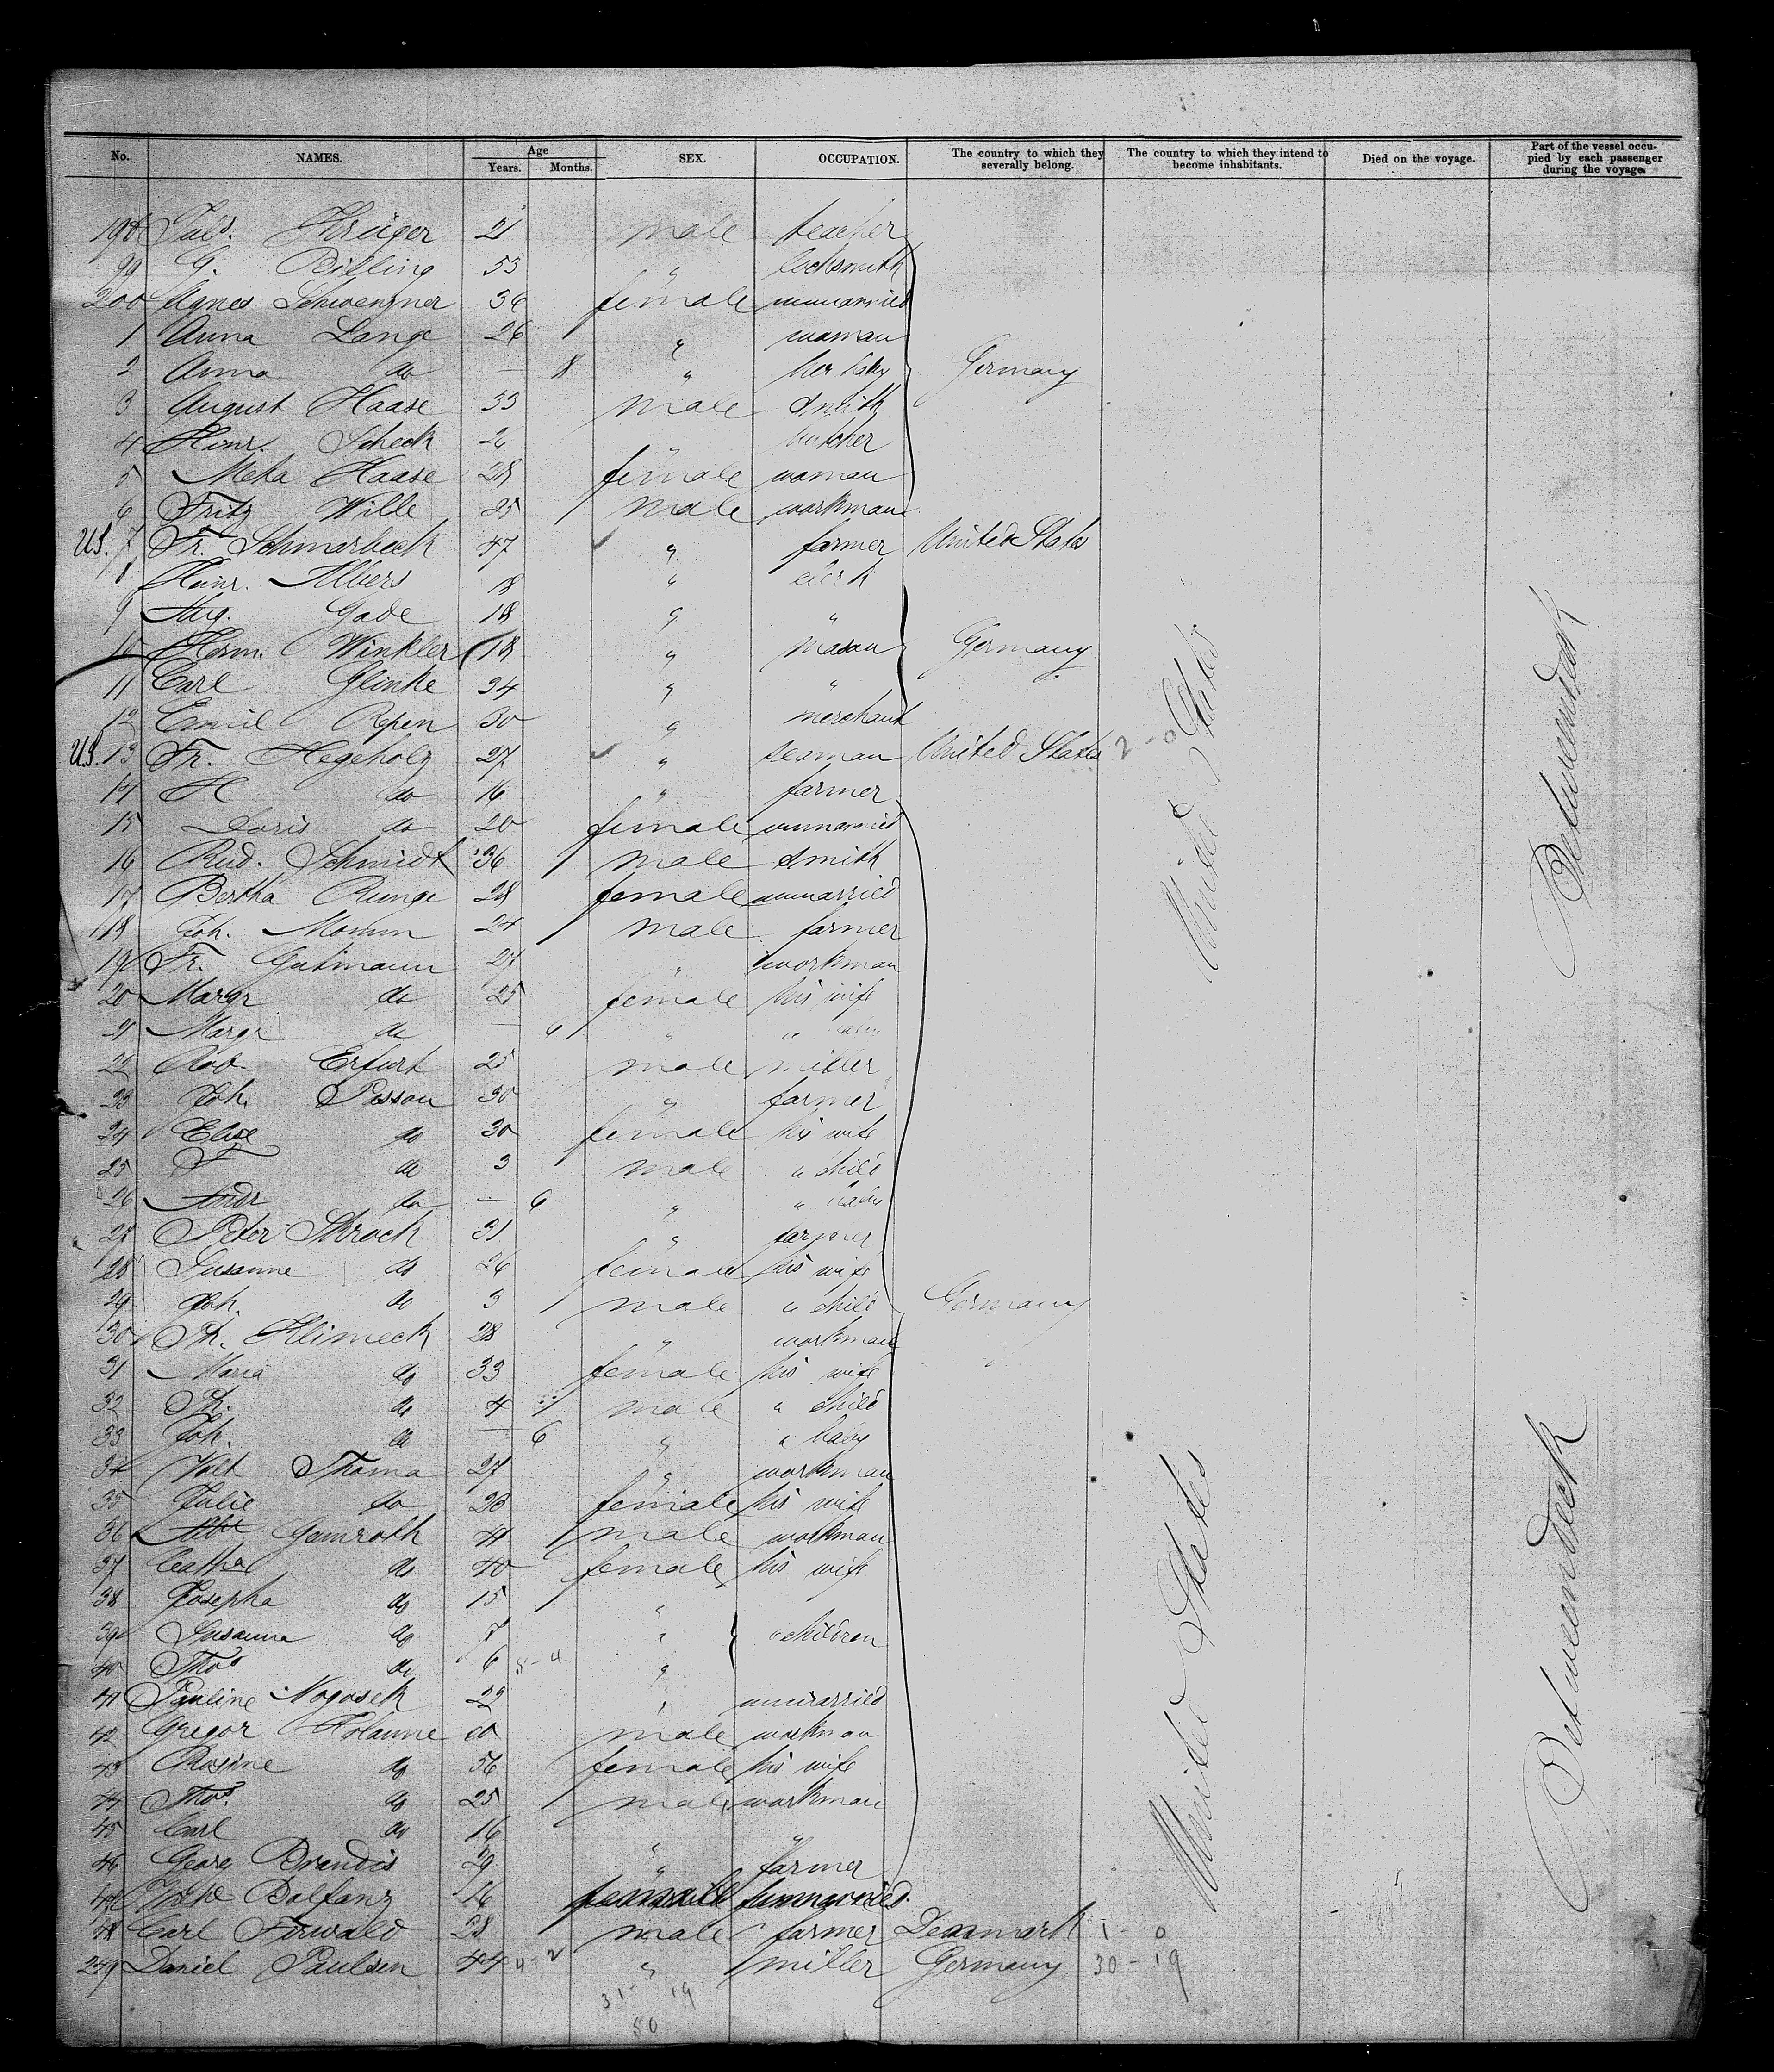 No. NAMES. Age Years. Months. SEX. OCCUPATION. The country to which they severally belong. The country to which they intend to become inhabitants. Died on the voyage. Part of the vessel occupied by each passenger during the voyage.
198 Krüger 21 male teacher
99 G. Billing 53 " locksmith
200 Agnes Schwenzner 36 female unmarried
1 Anna Lange 26 " woman
2 Anna do — 8 " her baby Germany
3 August Haase 33 male smith
4 Hinr. Scheck " butcher
5 Meta Haase 28 female woman
6 Fritz Wille 25 male workman
U.S. 7 Fr. Schmarbeck 47 " farmer United States
8 Heinr. Albers 18 " clerk
9 Aug. Gade 18 " "
10 Herm. Winkler 18 " mason Germany
11 Carl Glinke 34 " "
12 Emil Repen 30 " merchant
U.S. 13 Fr. Hegeholz 27 " seaman United States 2 - 0
14 H do 16 " farmer
15 Doris do 20 female unmarried
16 Rud. Schmidt 36 male smith
17 Bertha Runge 28 female unmarried
18 Joh. Momm 24 male farmer
19 Fr. Gutmann 27 " workman
20 Margr do 25 female his wife
21 Margr do — " " baby
22 Rob. Erfurt 25 male miller
23 Joh. Possau 30 " farmer
24 Elise do 30 female his wife
25 F do 3 male " child
26 Andr do — 6 " " baby
27 Peter Schroch 31 " farmer
28 Susanne do 26 female his wife
29 Joh. do 3 male " child Germany
30 Th. Klimeck 28 " workman
31 Maria do 33 female his wife
32 Th. do 4 male " child
33 Joh. do — 6 " " baby
34 Valt Thoma 27 " workman
35 Julie do 28 female his wife
36 Albt Gamroth 41 male workman
37 Cathar do 40 female his wife
38 Josepha do 15 "
39 Susanna do 7 " " children
40 Thos do 6 5-4 "
41 Pauline Nogosek 22 " unmarried
42 Gregor Kolanne 60 male workman
43 Rosine do 56 female his wife
44 Thos. do 25 male workman
45 Carl do 16 " "
46 Georg Brandis 29 " farmer
47 Balfanz 16 female unmarried
48 Carl Firwald 28 male farmer Denmark 1 - 0
249 Daniel Paulsen 44 4-2 " miller Germany 30 - 19
31 - 19
50
United States
United States
Betweendeck
Betweendeck